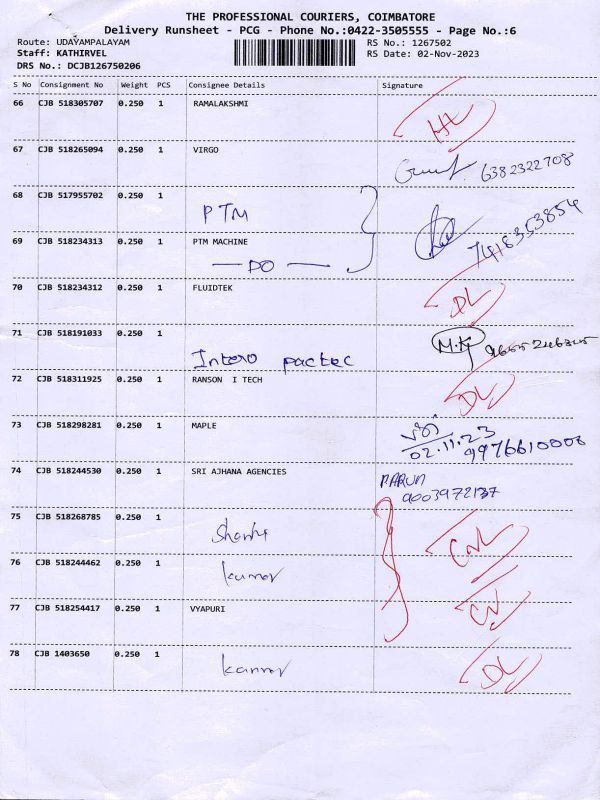 THE PROFESSIONAL COURIERS, COIMBATORE
Delivery Runsheet - PCG - Phone No.:0422-3505555 - Page No.:6
Route: UDAYAMPALAYAM RS No.: 1267502
Staff: KATHIRVEL RS Date: 02-Nov-2023
DRS No.: DCJB126750206
S No Consignment No Weight PCS Consignee Details Signature
66 CJB 518305707 0.250 1 RAMALAKSHMI
67 CJB 518265094 0.250 1 VIRGO 6382322708
68 CJB 517955702 0.250 1
PTM
7418353854
69 CJB 518234313 0.250 1 PTM MACHINE
— DO —
70 CJB 518234312 0.250 1 FLUIDTEK DL
71 CJB 518191033 0.250 1 M.K
Intero pactec
72 CJB 518311925 0.250 1 RANSON I TECH DL
73 CJB 518298281 0.250 1 MAPLE
02.11.23 9976610008
74 CJB 518244530 0.250 1 SRI AJHANA AGENCIES
9003972137
75 CJB 518268785 0.250 1
CNL
76 CJB 518244462 0.250 1
kumar
77 CJB 518254417 0.250 1 VYAPURI
78 CJB 1403650 0.250 1 DL